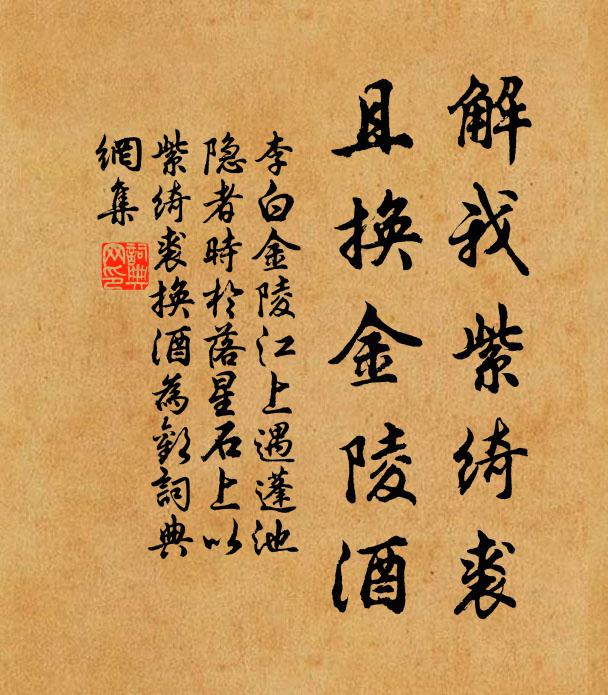 解我紫綺裘
且換金陵酒
李白金陵江上遇蓬池
隐者時於落星石上以
紫綺裘換酒為歡詞典
網集
詞典
网印